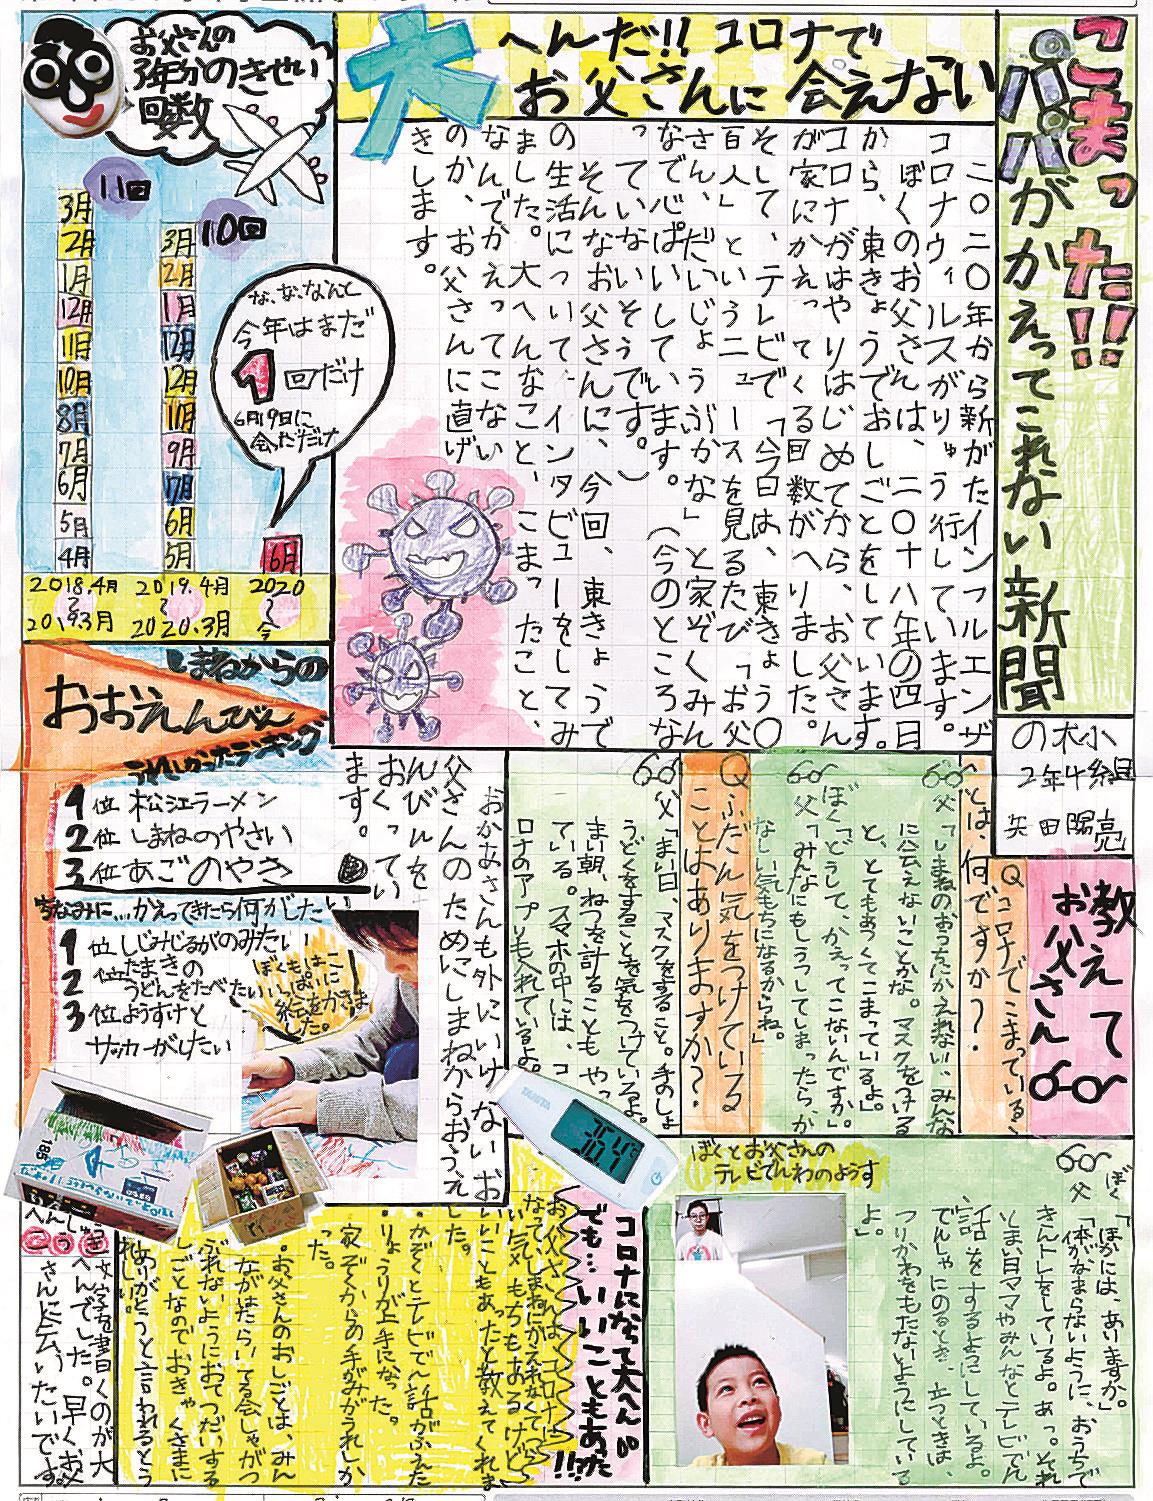 こまった!!
パパがかえってこれない新聞
の木小
2年4組
矢田陽亮
大へんだ!! コロナで
お父さんに会えない
二〇二〇年から新がたインフルエンザ
コロナウィルスがりゅう行しています。
ぼくのお父さんは、二〇十八年の四月
から、東きょうでおしごとをしています。
コロナがはやりはじめてから、お父さん
が家にかえってくる回数がへりました。
そして、テレビで「今日は、東きょう〇
百人」というニュースを見るたび「お父
さん、だいじょうぶかな」と家ぞくみん
なで心ぱいしています。(今のところな
っていないそうです。)
そんなお父さんに、今回、東きょうで
の生活について、インタビューをしてみ
ました。大へんなこと、こまったこと、
なんでかえってこない
のか、お父さんに直げ
きします。
お父さんの
3年かんのきせい
回数
11回
3月
2月
1月
12月
11月
10月
8月
7月
6月
5月
4月
10回
3月
2月
1月
12月
12月
10月
9月
7月
6月
5月
な、な、なんと
今年はまだ
1回だけ
6月19日に
会ただけ
6月
2018.4月
〜
2019.3月
2019.4月
〜
2020.3月
2020
〜
今
しまねからの
おおえんびん
うれしかったランキング
1位 松江ラーメン
2位 しまねのやさい
3位 あごのやき
ちなみに…かえってきたら何がしたい
1位 しじみじるがのみたい
2位 たまきの
うどんをたべたい
3位 ようすけと
サッカーがしたい
ぼくもはこ
いっぱいに
絵をかきま
した。
おかあさんも外にいけないお
父さんのためにしまねからおうえ
んびんを
おくってい
ます。
教えて
お父さん
Q コロナでこまっている
ことは、何ですか?
父「しまねのおうちにかえれない…みんな
に会えないことかな。マスクをつける
と、とてもあつくてこまっているよ。」
ぼく「どうして、かえってこないんですか。」
父「みんなにもしうつしてしまったら、か
なしい気もちになるからね。」
Q ふだん気をつけている
ことはありますか?
父「まい日、マスクをすること。手のしょ
うどくをすることを気をつけているよ。
まい朝、ねつを計ることも、やっ
ている。スマホの中には、コ
ロナのアプリも入れているよ。」
TANITA
36.4℃
ぼく「ほかには、ありますか。」
父「体がなまらないように、おうちで
きんトレをしているよ。あっ。それ
とまい日ママやみんなとテレビでん
話をするようにしているよ。
でんしゃにのるとき、立つときは、
つりかわをもたないようにしている
よ。」
ぼくとお父さんの
テレビでんわのようす
コロナになって大へん…
でも…いいこともあった!!
お父さんは、コロナに
なってしまねにかえれなくてかなし
い気もちもあるけど、
いいこともあったと教えてくれま
した。
・かぞくとテレビでん話がふえた
・りょうりが上手になった。
・家ぞくからの手がみがうれしか
った。
・お父さんのおしごとは、みん
ながはたらいてる会しゃがつ
ぶれないようにおてつだいする
しごとなのでおきゃくさまに
ありがとうと言われるとう
れしい。
文字を書くのが大
へんでした。早くお父
さんに会いたいです。